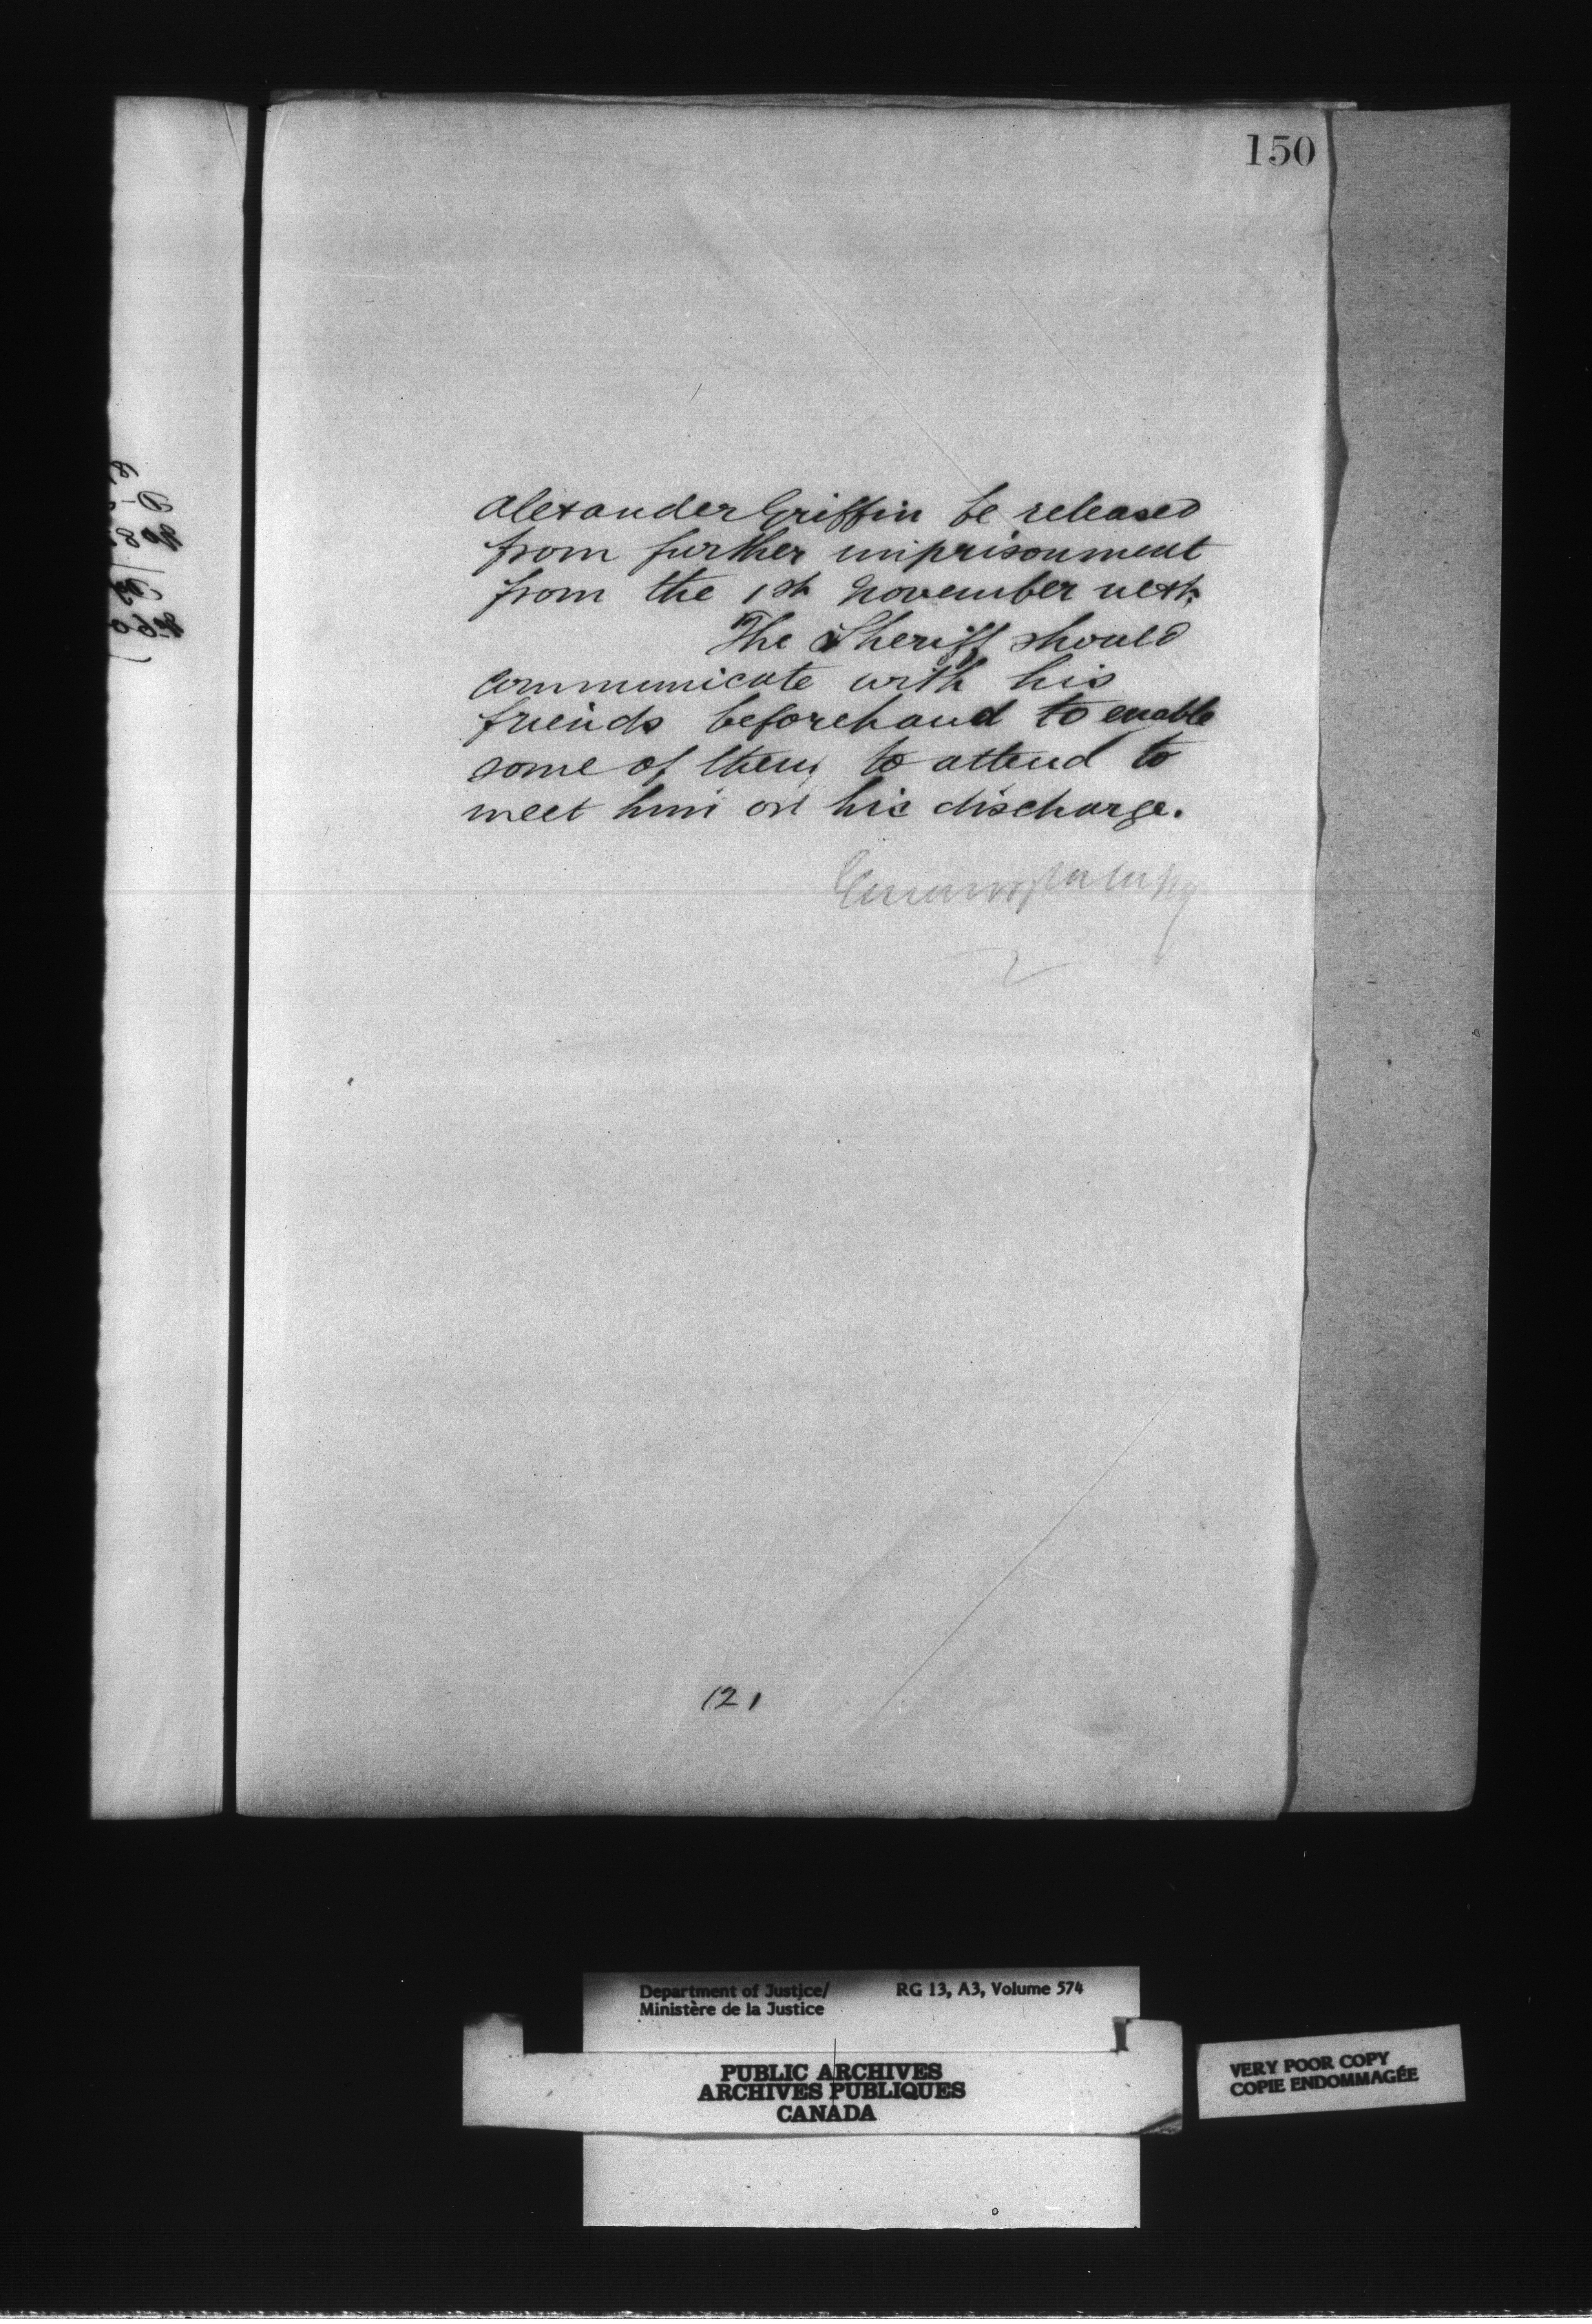 150
Alexander Griffin be released
from further imprisonment
from the 1st November next.
The Sheriff should
communicate with his
friends beforehand to enable
some of them to attend to
meet him on his discharge.
(2)
Department of Justice/ RG 13, A3, Volume 574
Ministère de la Justice
PUBLIC ARCHIVES
ARCHIVES PUBLIQUES
CANADA
VERY POOR COPY
COPIE ENDOMMAGÉE